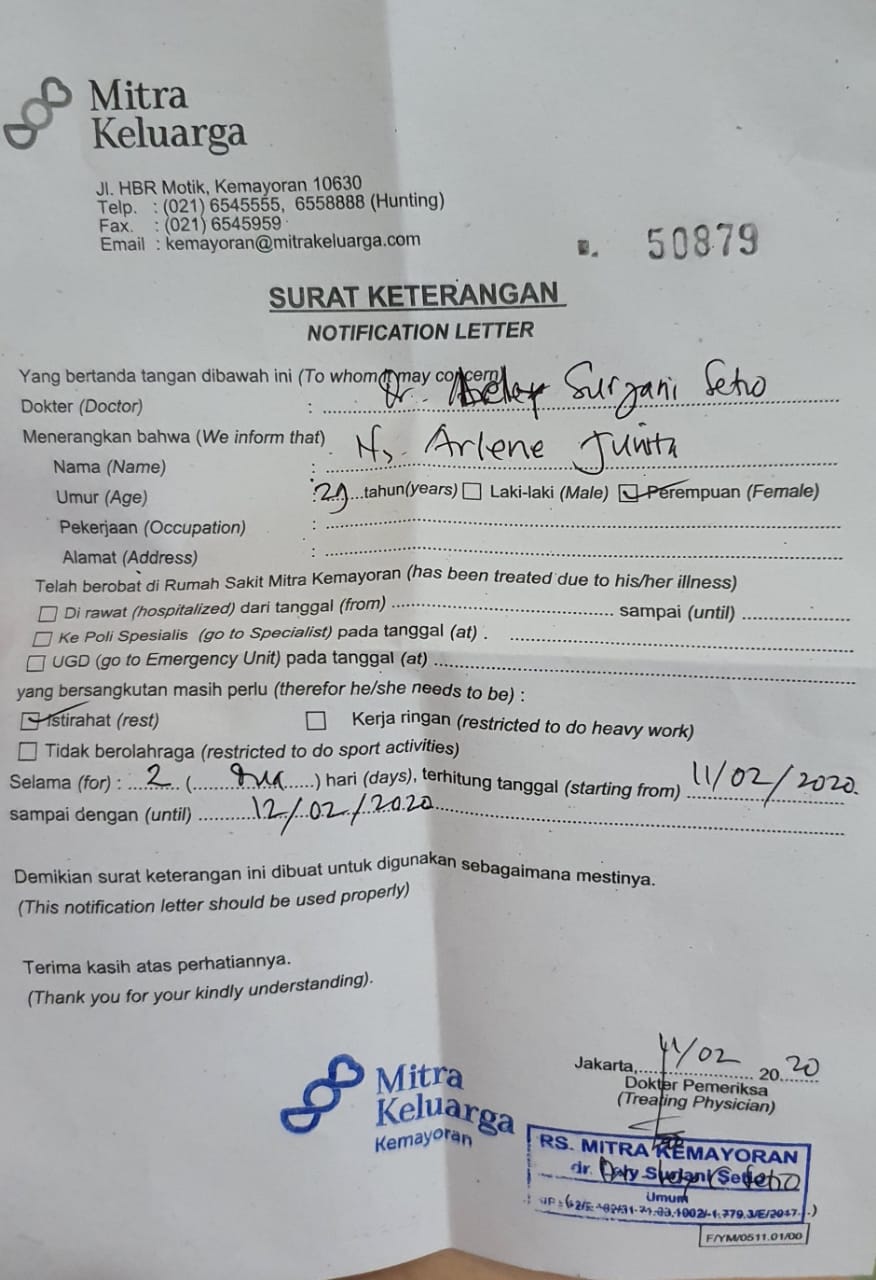 Mitra
Keluarga
Jl. HBR Motik, Kemayoran 10630
Telp. : (021) 6545555, 6558888 (Hunting)
Fax. : (021) 6545959
Email : kemayoran@mitrakeluarga.com
50879
SURAT KETERANGAN
NOTIFICATION LETTER
Yang bertanda tangan dibawah ini (To whom it may concern)
Dokter (Doctor) : Dr. Suryani Setio
Menerangkan bahwa (We inform that)
Nama (Name) : Ny. Arlene Junita
Umur (Age) : 29 tahun(years) Laki-laki (Male) Perempuan (Female)
Pekerjaan (Occupation) :
Alamat (Address) :
Telah berobat di Rumah Sakit Mitra Kemayoran (has been treated due to his/her illness)
Di rawat (hospitalized) dari tanggal (from) sampai (until)
Ke Poli Spesialis (go to Specialist) pada tanggal (at) .
UGD (go to Emergency Unit) pada tanggal (at)
yang bersangkutan masih perlu (therefor he/she needs to be) :
Istirahat (rest) Kerja ringan (restricted to do heavy work)
Tidak berolahraga (restricted to do sport activities)
Selama (for) : 2 (dua) hari (days), terhitung tanggal (starting from) 11/02/2020.
sampai dengan (until) 12/02/2020
Demikian surat keterangan ini dibuat untuk digunakan sebagaimana mestinya.
(This notification letter should be used properly)
Terima kasih atas perhatiannya.
(Thank you for your kindly understanding).
Jakarta, 11/02 2020
Dokter Pemeriksa
(Treating Physician)
Mitra
Keluarga
Kemayoran
RS. MITRA KEMAYORAN
dr. Setio
Umum
F/YM/0511.01/00